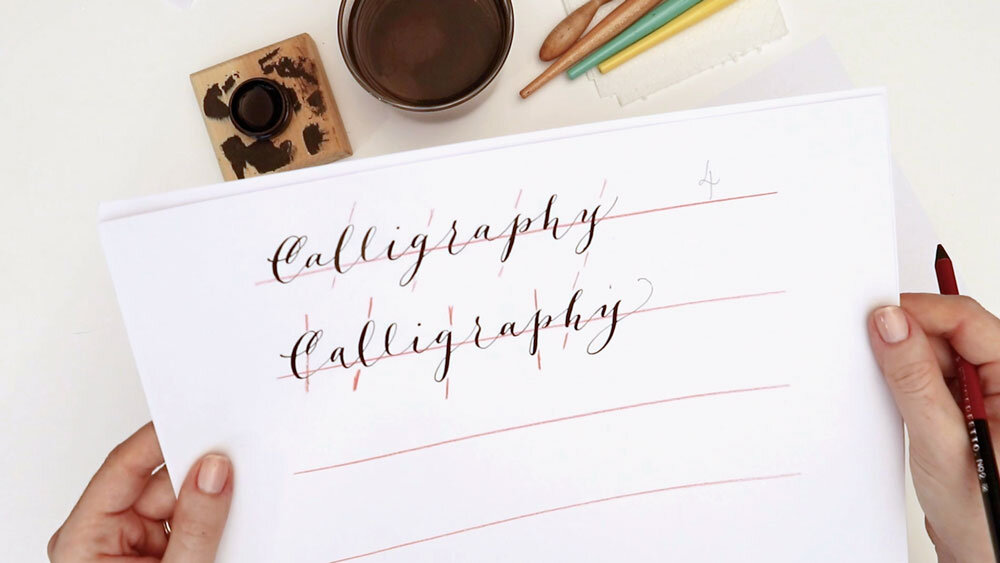 4
Calligraphy
Calligraphy